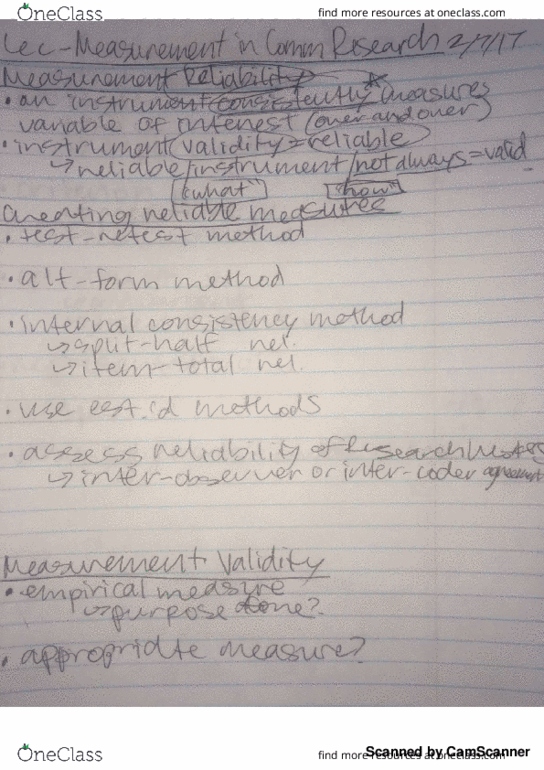 OneClass
find more resources at oneclass.com
Lec - Measurement in Comm Research 2/7/17
Measurement Reliability
• an instrument consistently measures
variable of interest (over and over)
• instrument validity = reliable
↳ reliable instrument not always = valid
"what" "how"
Creating reliable measures
• test-retest method
• alt-form method
• internal consistency method
↳ split-half rel.
↳ item-total rel.
• use est.'d methods
• assess reliability of Research
↳ inter-observer or inter-coder agreement
Measurement Validity
• empirical measure
↳ purpose done?
• appropriate measure?
OneClass
find more resources at oneclass.com
Scanned by CamScanner